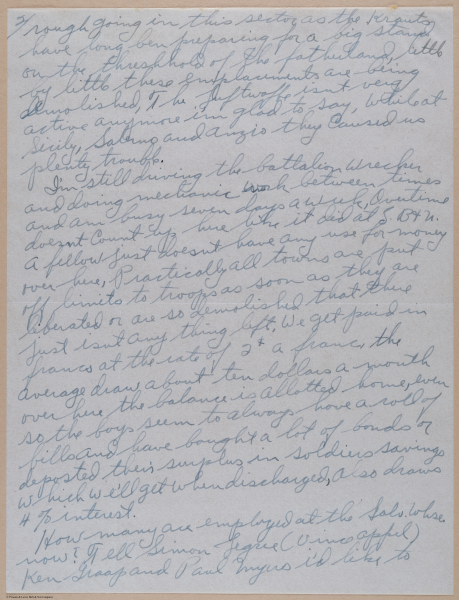 3/ rough going in this sector as the Krauts
have long ben preparing for a big stand
on the threshhold of the fatherland, little
by little these emplacments are being
demolished, The luftwaffe isn't very
active anymore i'm glad to say, while at
Sicily, Salerno and Anzio they caused us
plenty trouble.
I'm still driving the battalion wrecker
and doing mechanic work between times
and am busy seven days a week, Overtime
doesnt Count up here like it did at S.
A fellow just doesnt have any use for money
over here, Practically all towns are put
off limits to troops as soon as they are
liberated or are so demolished that there
just isnt any thing left. We get paid in
francs at the rate of 2¢ a franc, the
average draw about ten dollars a month
over here the balance is allotted home, even
so the boys seem to always have a roll of
bills and have bought a lot of bonds or
deposted their surplus in soldiers savings
which we'll get when discharged, also draws
4% interest.
How many are employed at the Salv. Whse.
now? Tell Simon (Vineappel)
Ken and Paul Myers i'd like to